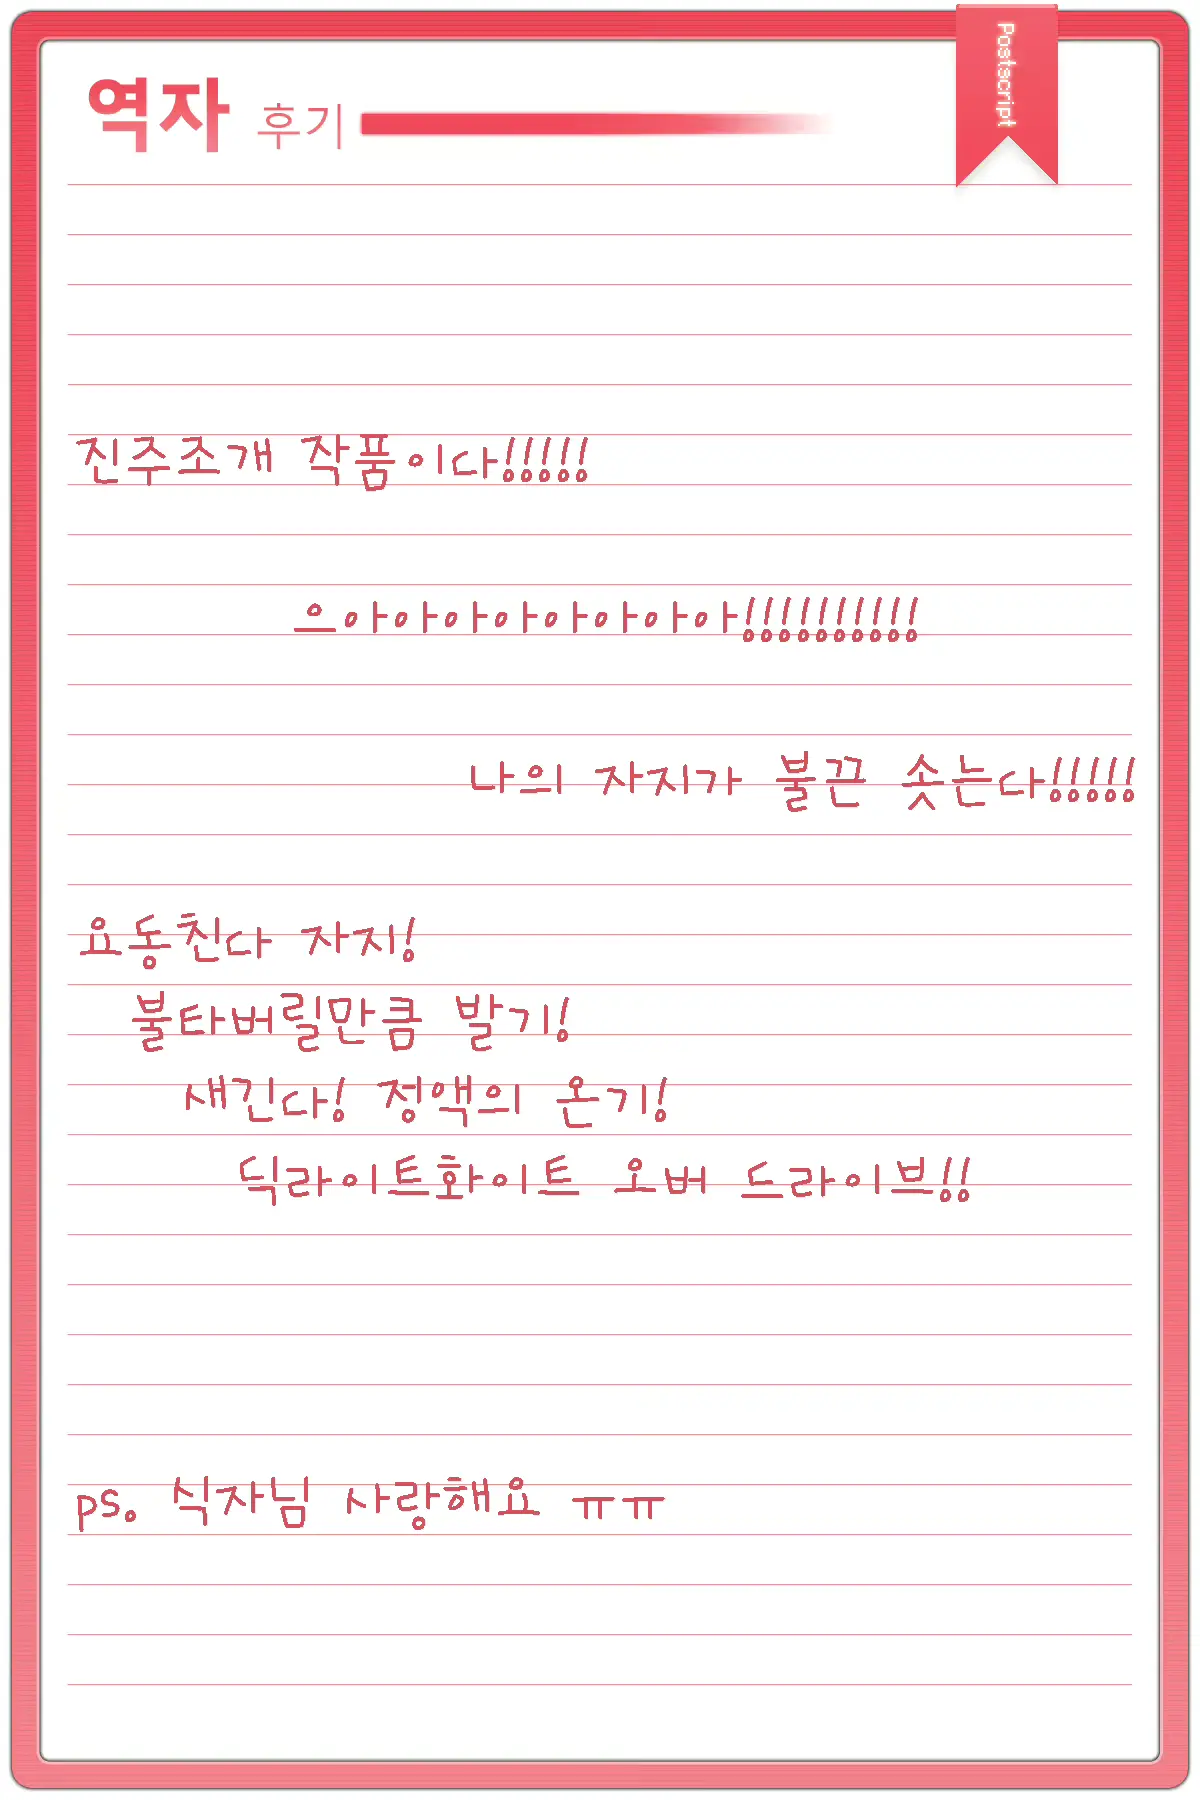 역자 후기
Postscript
진주조개 작품이다!!!!!
으아아아아아아아아!!!!!!!!!!
나의 자지가 불끈 솟는다!!!!!
요동친다 자지!
불타버릴만큼 발기!
새긴다! 정액의 온기!
딕라이트화이트 오버 드라이브!!
ps. 식자님 사랑해요 ㅠㅠ